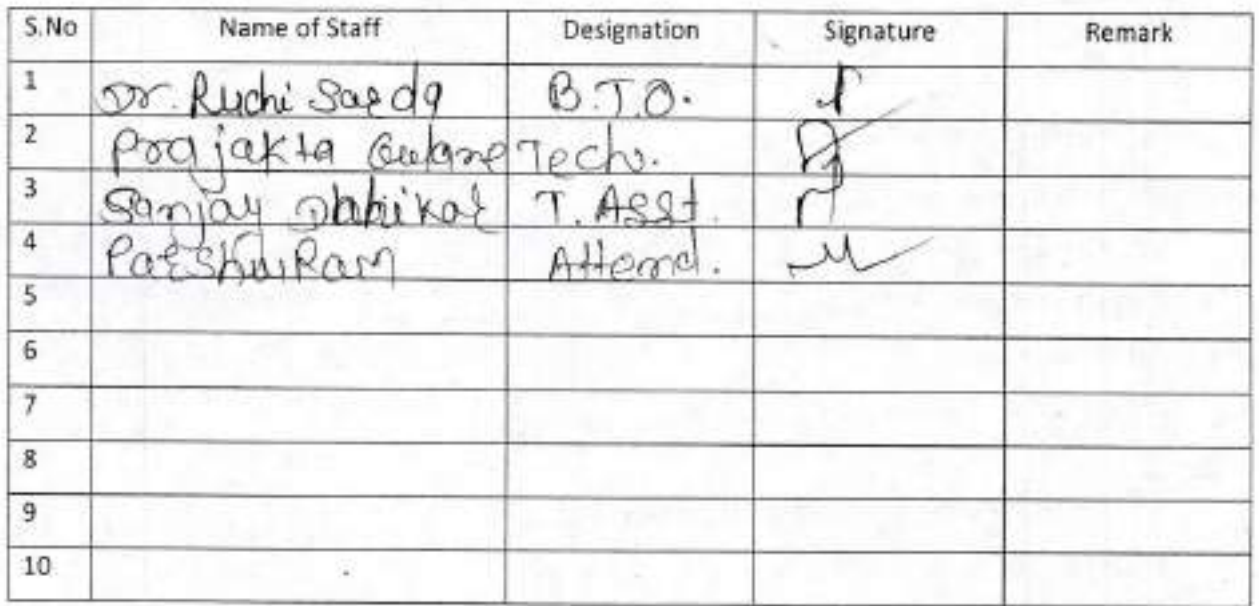 S.No Name of Staff Designation Signature Remark
1 Dr. Ruchi Sarda B.T.O.
2 Prajakta Gulane Tech.
3 Sanjay Dahikar T. Asst.
4 Parshuram Attend.
5
6
7
8
9
10